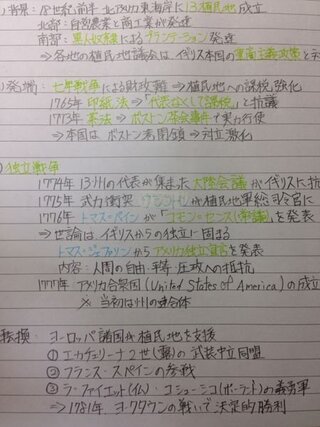 背景: 18世紀前半 北アメリカ東海岸に13植民地成立
北部: 自営農業と商工業が発達
南部: 黒人奴隷によるプランテーション発達
⇒各地の植民地議会は、イギリス本国の重商主義政策と
発端: 七年戦争による財政難→植民地への課税強化
1765年 印紙法→「代表なくして課税」と抗議
1773年 茶法→ボストン茶会事件で実力行使
⇒本国は ボストン港閉鎖→対立激化
独立戦争
1774年 13州の代表が集まった大陸会議がイギリスに抗
1775年 武力衝突 ワシントンが植民地軍総司令官に
1776年 トマス=ペインが「コモン=センス(常識)」を発表
⇒世論は、イギリスからの独立に固まる
トマス・ジェファソンからアメリカ独立宣言を発表
内容: 人間の自由・平等、圧政への抵抗
1777年 アメリカ合衆国(United States of America)の成立
※ 当初は州の連合体
転換: ヨーロッパ諸国が植民地を支援
① エカチェリーナ2世(露)の武装中立同盟
② フランス・スペインの参戦
③ ラ・ファイエット(仏)・コシューシコ(ポーランド)の義勇軍
⇒1781年 ヨークタウンの戦いで決定的勝利